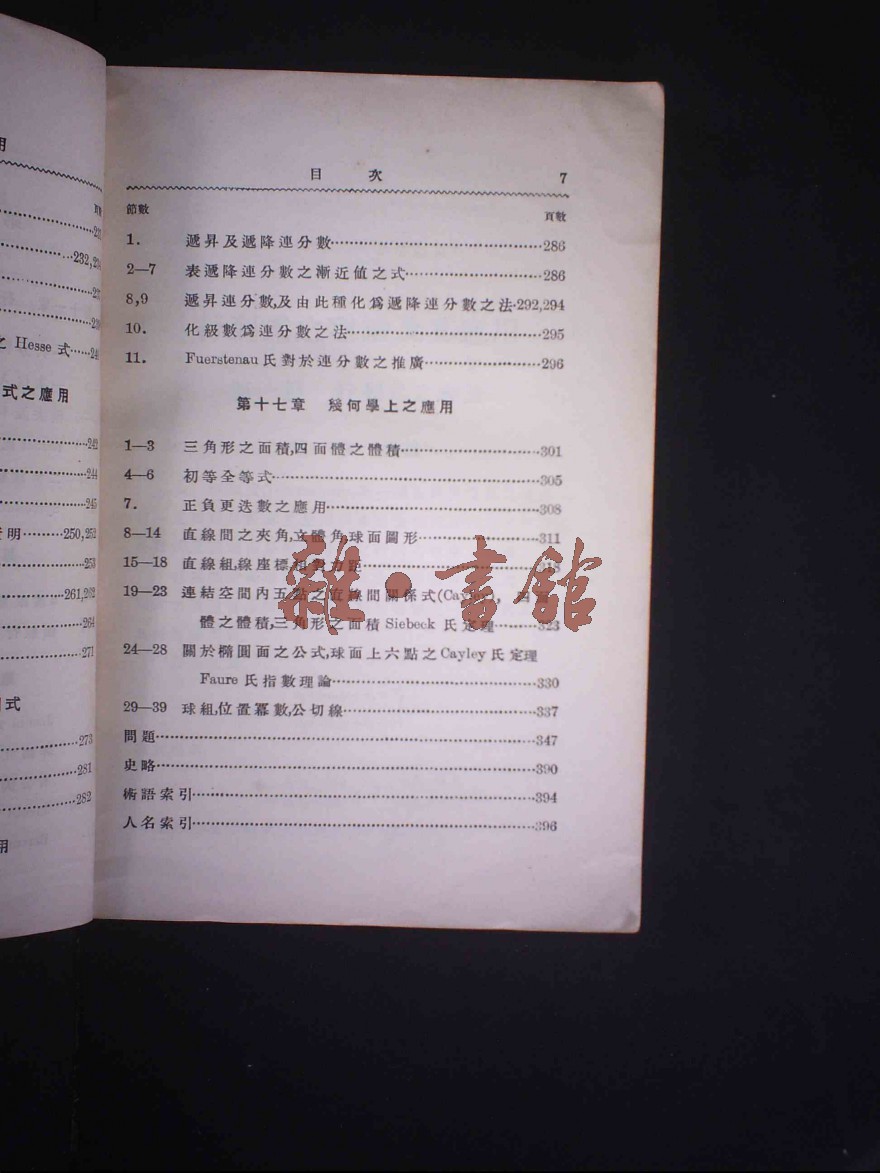 用
頁數
232,2
之 Hesse 式……24
式之應用
242
244
245
明………250,252
253
261,262
264
271
式
273
281
282
用
目 次 7
節數 頁數
1. 遞昇及遞降連分數………286
2—7 表遞降連分數之漸近値之式………286
8,9 遞昇連分數,及由此種化爲遞降連分數之法·292,294
10. 化級數爲連分數之法………295
11. Fuerstenau 氏對於連分數之推廣………296
第十七章 幾何學上之應用
1—3 三角形之面積,四面體之體積………301
4—6 初等全等式………305
7. 正負更迭數之應用………308
8—14 直線間之夾角,立體角,球面圖形………311
15—18 直線組,線座標,相對力距………318
19—23 連結空間內五點之直線間關係式(Cayley), 四面
體之體積,三角形之面積 Siebeck 氏定理………323
24—28 關於橢圓面之公式,球面上六點之 Cayley 氏定理
Faure 氏指數理論………330
29—39 球組,位置冪數,公切線………337
問題………347
史略………390
術語索引………394
人名索引………396
雜·書館